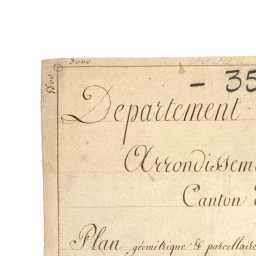 3000
5500
- 35
Departement
Arrondisseme
Canton
Plan géométrique & parcellaire